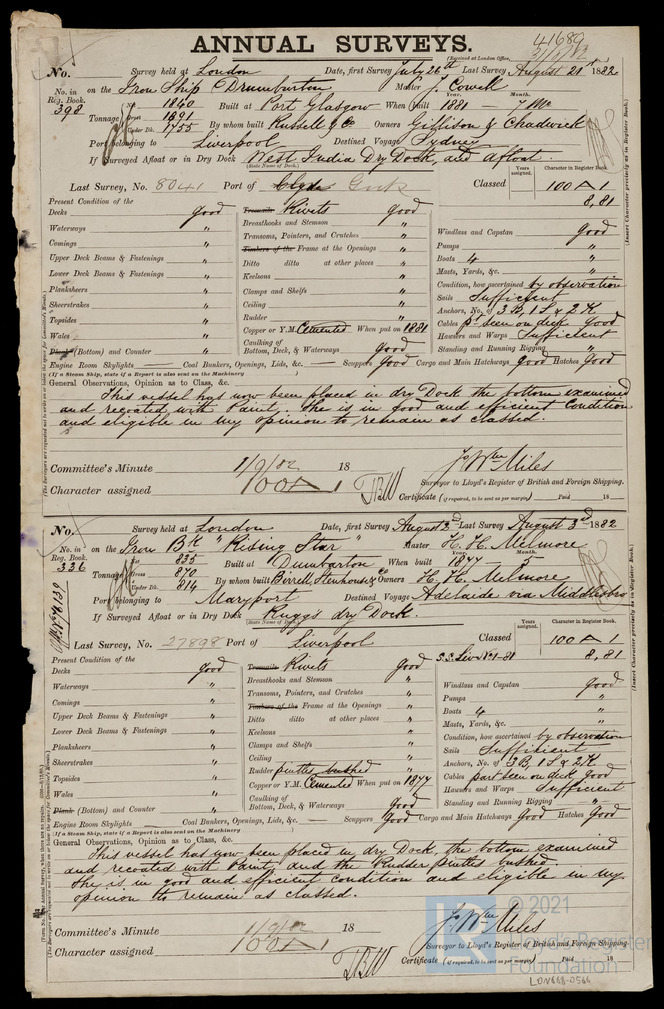 41689
ANNUAL SURVEYS.
(Received at London Office, 2/9/82
No. Survey held at London Date, first Survey July 26th Last Survey August 28th 1882
No. in Reg. Book. 398 on the Iron Ship "Drumburton" Master J. Cowell
Tonnage Net 1840 Gross 1891 Under Dk. 1755 Built at Port Glasgow When built Year. 1881 Month. 7 Mo.
By whom built Russell & Co Owners Gillison & Chadwick
Port belonging to Liverpool Destined Voyage Sydney
If Surveyed Afloat or in Dry Dock West India Dry Dock, and afloat.
(State Name of Dock.)
Years assigned. Character in Register Book.
Last Survey, No. 8041 Port of Clyde Gnk Classed 100 A 1
8,81
Present Condition of the
Decks good
Waterways "
Comings "
Upper Deck Beams & Fastenings "
Lower Deck Beams & Fastenings "
Planksheers "
Sheerstrakes "
Topsides "
Wales "
Plank (Bottom) and Counter "
Treenails Rivets good
Breasthooks and Stemson "
Transoms, Pointers, and Crutches "
Timbers of the Frame at the Openings "
Ditto ditto at other places "
Keelsons "
Clamps and Shelfs "
Ceiling "
Rudder "
Copper or Y.M. Cemented When put on 1881
Caulking of Bottom, Deck, & Waterways Good
Windlass and Capstan Good
Pumps "
Boats 4 "
Masts, Yards, &c. "
Condition, how ascertained by observation
Sails Sufficient
Anchors, No. of 3 B, 1 S & 2 K
Cables pt seen on deck Good
Hawsers and Warps Sufficient
Standing and Running Rigging "
Engine Room Skylights — Coal Bunkers, Openings, Lids, &c. — Scuppers Good Cargo and Main Hatchways good Hatches Good
(If a Steam Ship, state if a Report is also sent on the Machinery
General Observations, Opinion as to Class, &c.
This vessel has now been placed in dry Dock the bottom examined
and recoated with Paint. She is in good and efficient Condition
and eligible in my opinion to remain as classed.
Committee's Minute 1/9/82 18
Character assigned 100 A 1
TBW
Jo Wm Miles
Surveyor to Lloyd's Register of British and Foreign Shipping.
Certificate (if required, to be sent as per margin) Paid 18
No. Survey held at London Date, first Survey August 3rd Last Survey August 3rd 1882
No. in Reg. Book. 336 on the Iron Bk "Rising Star" Master H. H. Melmore
Tonnage Net 835 Gross 870 Under Dk. 814 Built at Dumbarton When built Year. 1877 Month. 5
By whom built Birrell, Stenhouse & Co Owners H. H. Melmore
Port belonging to Maryport Destined Voyage Adelaide via Middlesbro
If Surveyed Afloat or in Dry Dock Rugg's dry Dock.
(State Name of Dock.)
Years assigned. Character in Register Book.
Last Survey, No. 27898 Port of Liverpool Classed 100 A 1
S.S. Liv. No 1-81 8,81
Present Condition of the
Decks good
Waterways "
Comings "
Upper Deck Beams & Fastenings "
Lower Deck Beams & Fastenings "
Planksheers "
Sheerstrakes "
Topsides "
Wales "
Plank (Bottom) and Counter "
Treenails Rivets Good
Breasthooks and Stemson "
Transoms, Pointers, and Crutches "
Timbers of the Frame at the Openings "
Ditto ditto at other places "
Keelsons "
Clamps and Shelfs "
Ceiling "
Rudder pintles bushed "
Copper or Y.M. Cemented When put on 1877
Caulking of Bottom, Deck, & Waterways Good
Windlass and Capstan Good
Pumps "
Boats 4 "
Masts, Yards, &c. "
Condition, how ascertained by observation
Sails Sufficient
Anchors, No. of 3 B, 1 S & 2 K
Cables part seen on deck Good
Hawsers and Warps Sufficient
Standing and Running Rigging "
Engine Room Skylights — Coal Bunkers, Openings, Lids, &c. — Scuppers Good Cargo and Main Hatchways Good Hatches Good
(If a Steam Ship, state if a Report is also sent on the Machinery
General Observations, Opinion as to Class, &c.
This vessel has now been placed in dry Dock, the bottom examined
and recoated with Paint, and the Rudder pintles bushed.
She is in good and efficient condition and eligible in my
opinion to remain as classed.
Committee's Minute 1/9/82 18
Character assigned 100 A 1
TBW
Jo Wm Miles
Surveyor to Lloyd's Register of British and Foreign Shipping.
Certificate (if required, to be sent as per margin) Paid 18
© 2021
Lloyd's Register
Foundation
LON668-0566